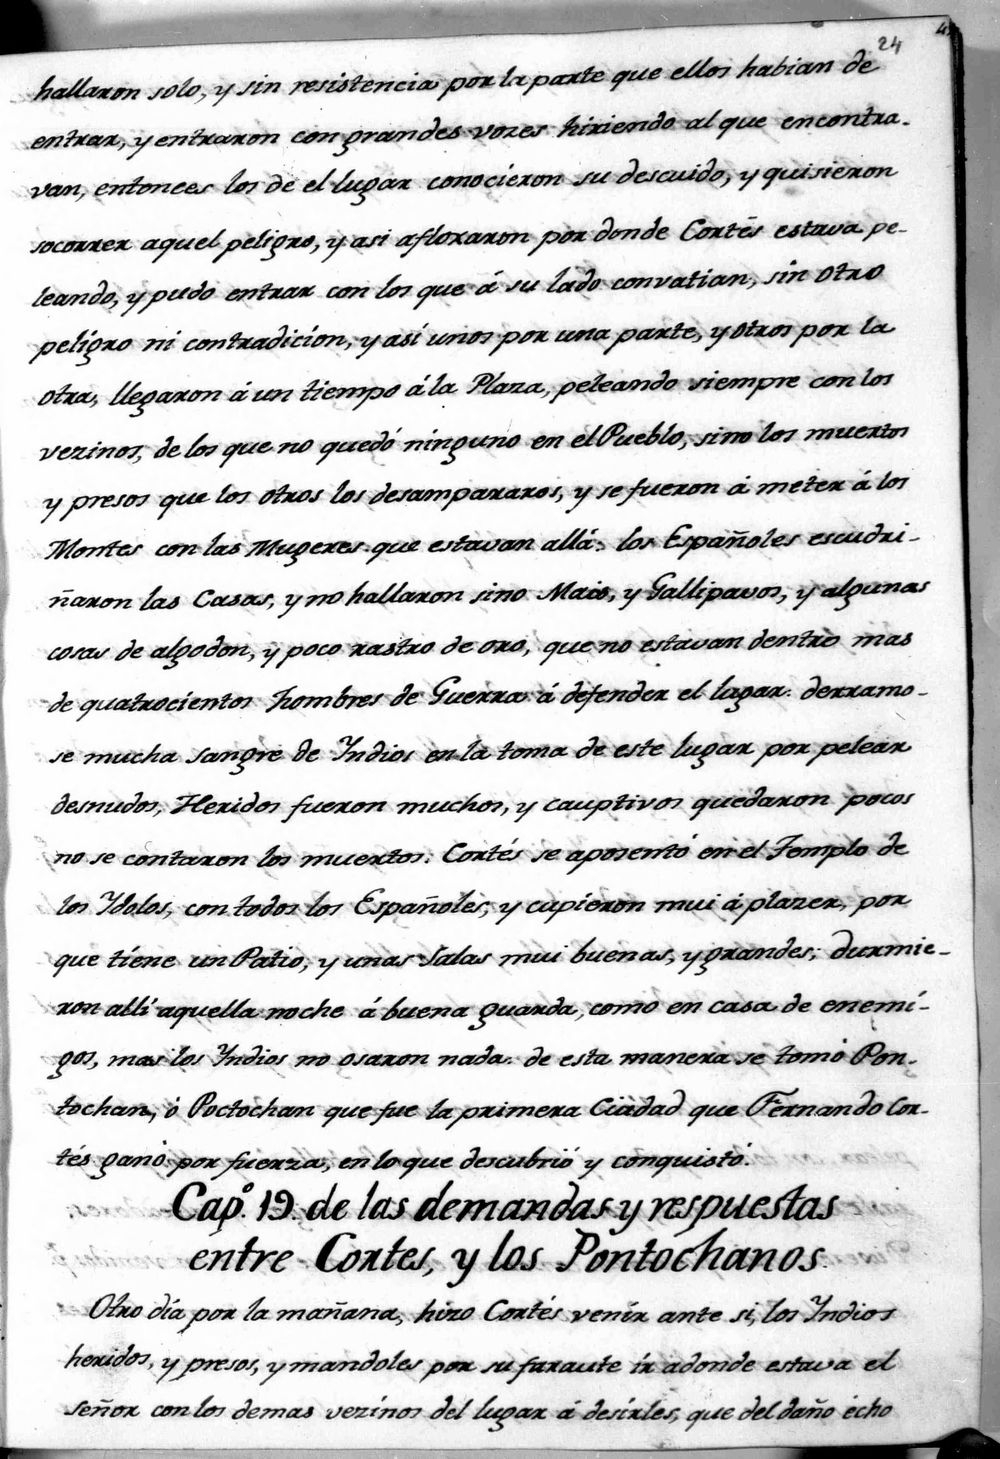 24
hallaron solo, y sin resistencia por la parte que ellos habian de
entrar, y entraron con grandes vozes hiriendo al que encontra-
van, entonces los de el lugar conocieron su descuido, y quisieron
socorrer aquel peligro, y asi afloxaron por donde Cortés estava pe-
leando, y pudo entrar con los que á su lado convatian, sin otro
peligro ni contradicion, y asi unos por una parte, y otros por la
otra, llegaron á un tiempo á la Plaza, peleando siempre con los
vezinos, de los que no quedó ninguno en el Pueblo, sino los muertos
y presos que los otros los desampararos, y se fueron á meter á los
Montes con las Mugeres que estavan allá: los Españoles escudri-
ñaron las Casas, y no hallaron sino Mais, y Gallipavos, y algunas
cosas de algodon, y poco rastro de oro, que no estavan dentro mas
de quatrocientos hombres de Guerra á defender el lugar: derramo-
se mucha sangre de Yndios en la toma de este lugar por pelear
desnudos, Heridos fueron muchos, y cauptivos quedaron pocos
no se contaron los muertos: Cortés se aposentó en el Templo de
los Ydolos, con todos los Españoles, y cupieron mui á plazer, por
que tiene un Patio, y unas Salas mui buenas, y grandes; durmie-
ron alli aquella noche á buena guarda, como en casa de enemi-
gos, mas los Yndios no osaron nada: de esta manera se tomó Pon-
tochan, ó Poctochan que fue la primera Ciudad que Fernando Cor-
tés ganó por fuerza, en lo que descubrió y conquistó.
Capº. 19. de las demandas y respuestas
entre Cortes, y los Pontochanos.
Otro dia por la mañana, hizo Cortés venir ante si, los Yndios
heridos, y presos, y mandoles por su faraute ir adonde estava el
señor con los demas vezinos del lugar á desirles, que del daño echo